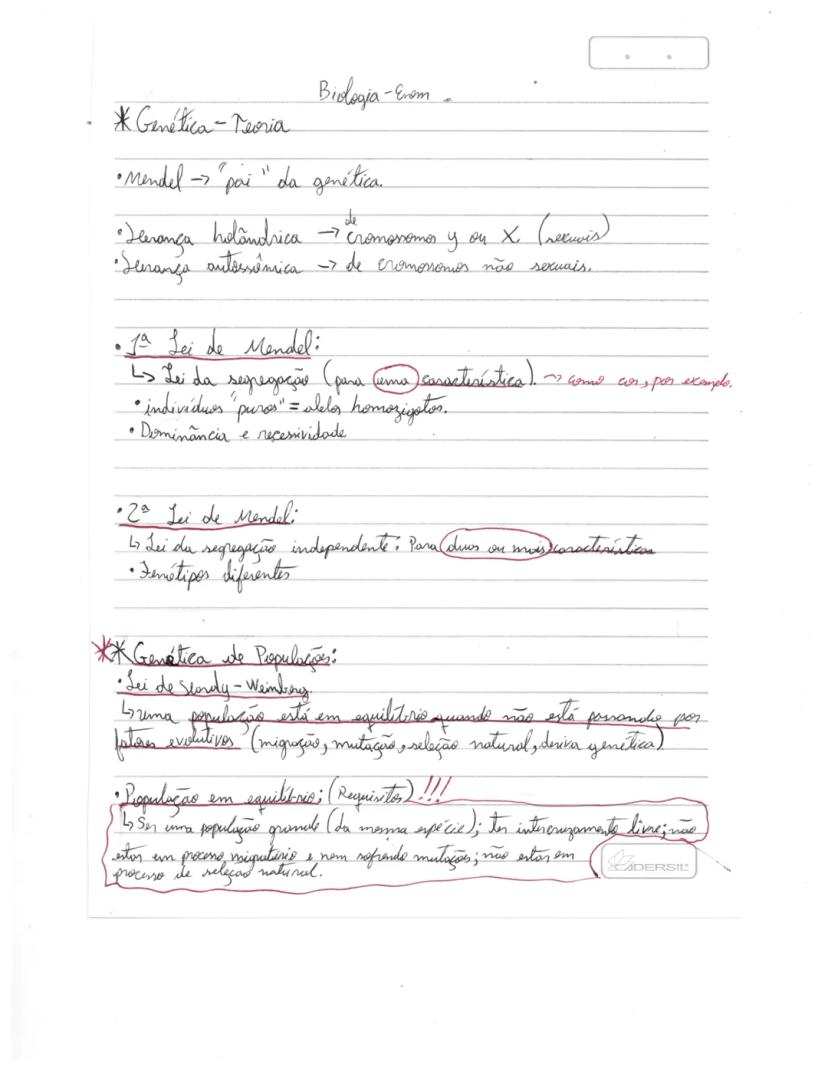 Biologia - Enem
* Genética - Teoria
• Mendel → "pai" da genética.
• Herança holândrica → de cromossomos y ou X (sexuais)
• Herança autossômica → de cromossomos não sexuais.
• 1ª Lei de Mendel:
↳ Lei da segregação (para uma característica). → como cor, por exemplo.
• indivíduos "puros" = alelos homozigotos.
• Dominância e recessividade
• 2ª Lei de Mendel:
↳ Lei da segregação independente: Para duas ou mais características
• Fenótipos diferentes
** Genética de Populações:
• Lei de Hardy - Weinberg.
↳ uma população está em equilíbrio quando não está passando por
fatores evolutivos (migração, mutação, seleção natural, deriva genética)
• População em equilíbrio: (Requisitos) !!!
↳ Ser uma população grande (da mesma espécie); ter intercruzamento livre; não
estar em processo migratório e nem sofrendo mutações; não estar em
processo de seleção natural.
CADERSIL